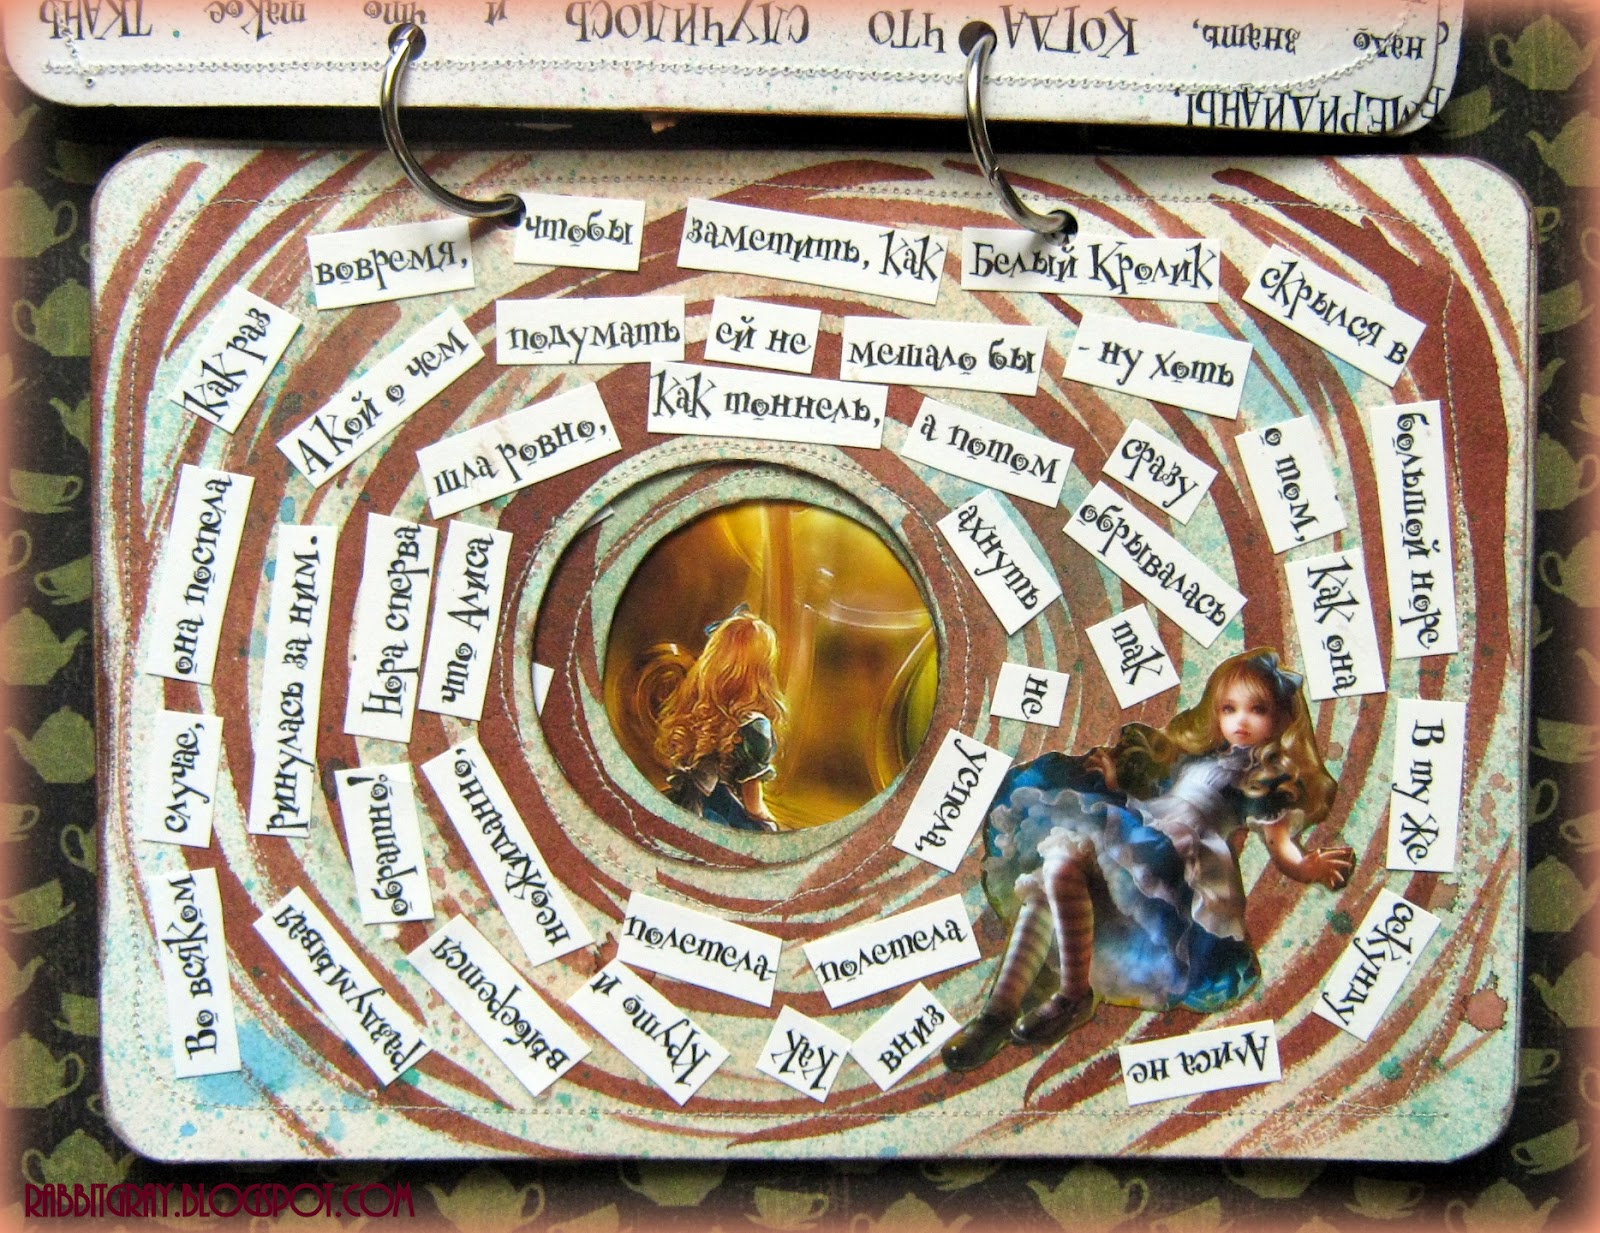 МЕРИДИАНЫ,
надо знать, КОГДА ЧТО СЛУЧИЛОСЬ и что такое ТКАНЬ
Во всяком
случае,
она поспела
как раз
вовремя,
чтобы
заметить, как
Белый Кролик
скрылся в
большой норе
В ту же
секунду
Алиса не
раздумывая
ринулась за ним.
А кой о чем
подумать
ей не
мешало бы
- ну хоть
о том,
как она
выберется
обратно!
Нора сперва
шла ровно,
как тоннель,
а потом
сразу
обрывалась
так
круто и
неожиданно,
что Алиса
ахнуть
не
успела,
как
полетела-
полетела
вниз
RABBITGRAY.BLOGSPOT.COM